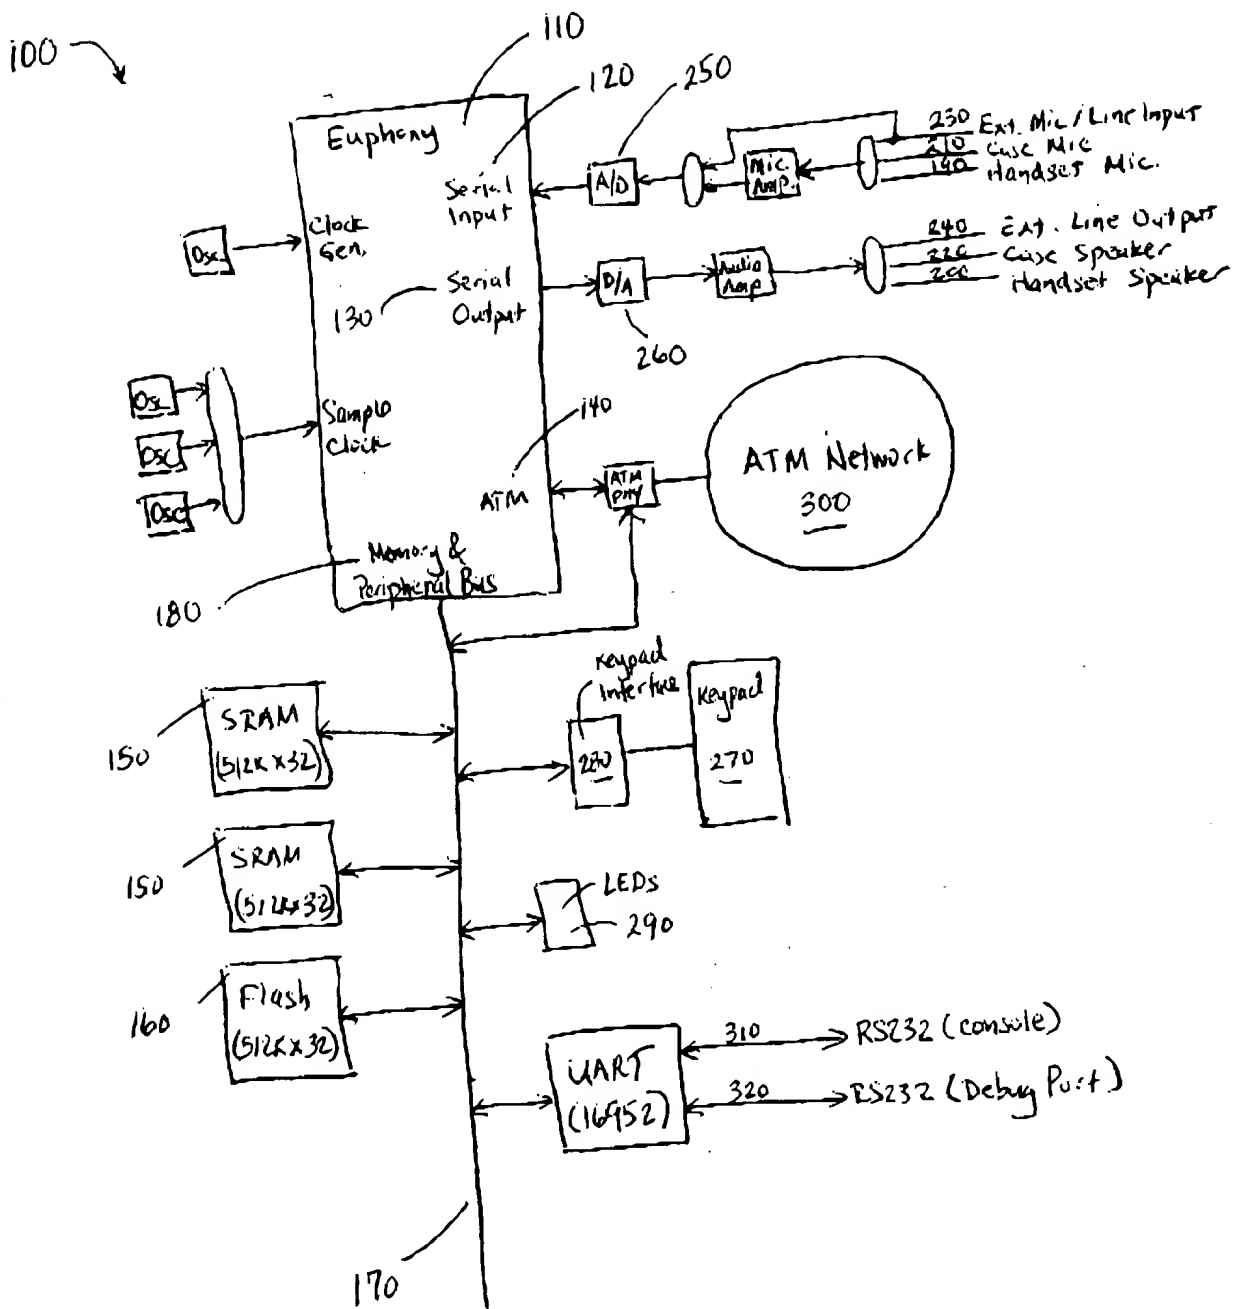 100
110
120
250
Euphony
Serial
Input
A/D
Mic.
Amp.
230 Ext. Mic/Line Input
210 Case Mic
190 Handset Mic.
Osc.
Clock
Gen.
130
Serial
Output
D/A
260
Audio
Amp
240 Ext. Line Output
220 Case Speaker
200 Handset Speaker
Osc
Osc
Osc
Sample
Clock
140
ATM
ATM
PHY
ATM Network
300
180
Memory &
Peripheral Bus
150
SRAM
(512K x 32)
Keypad
Interface
280
Keypad
270
150
SRAM
(512K x 32)
LEDs
290
160
Flash
(512K x 32)
UART
(16952)
310 RS232 (console)
320 RS232 (Debug Port)
170